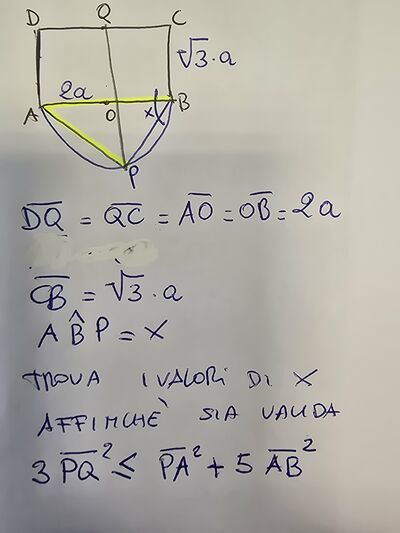 D Q C
√3·a
2a
A O x B
P
D̅Q̅ = Q̅C̅ = A̅O̅ = O̅B̅ = 2a
C̅B̅ = √3·a
AB̂P = x
TROVA I VALORI DI X
AFFINCHÈ SIA VALIDA
3 P̅Q̅² ≤ P̅A̅² + 5 A̅B̅²